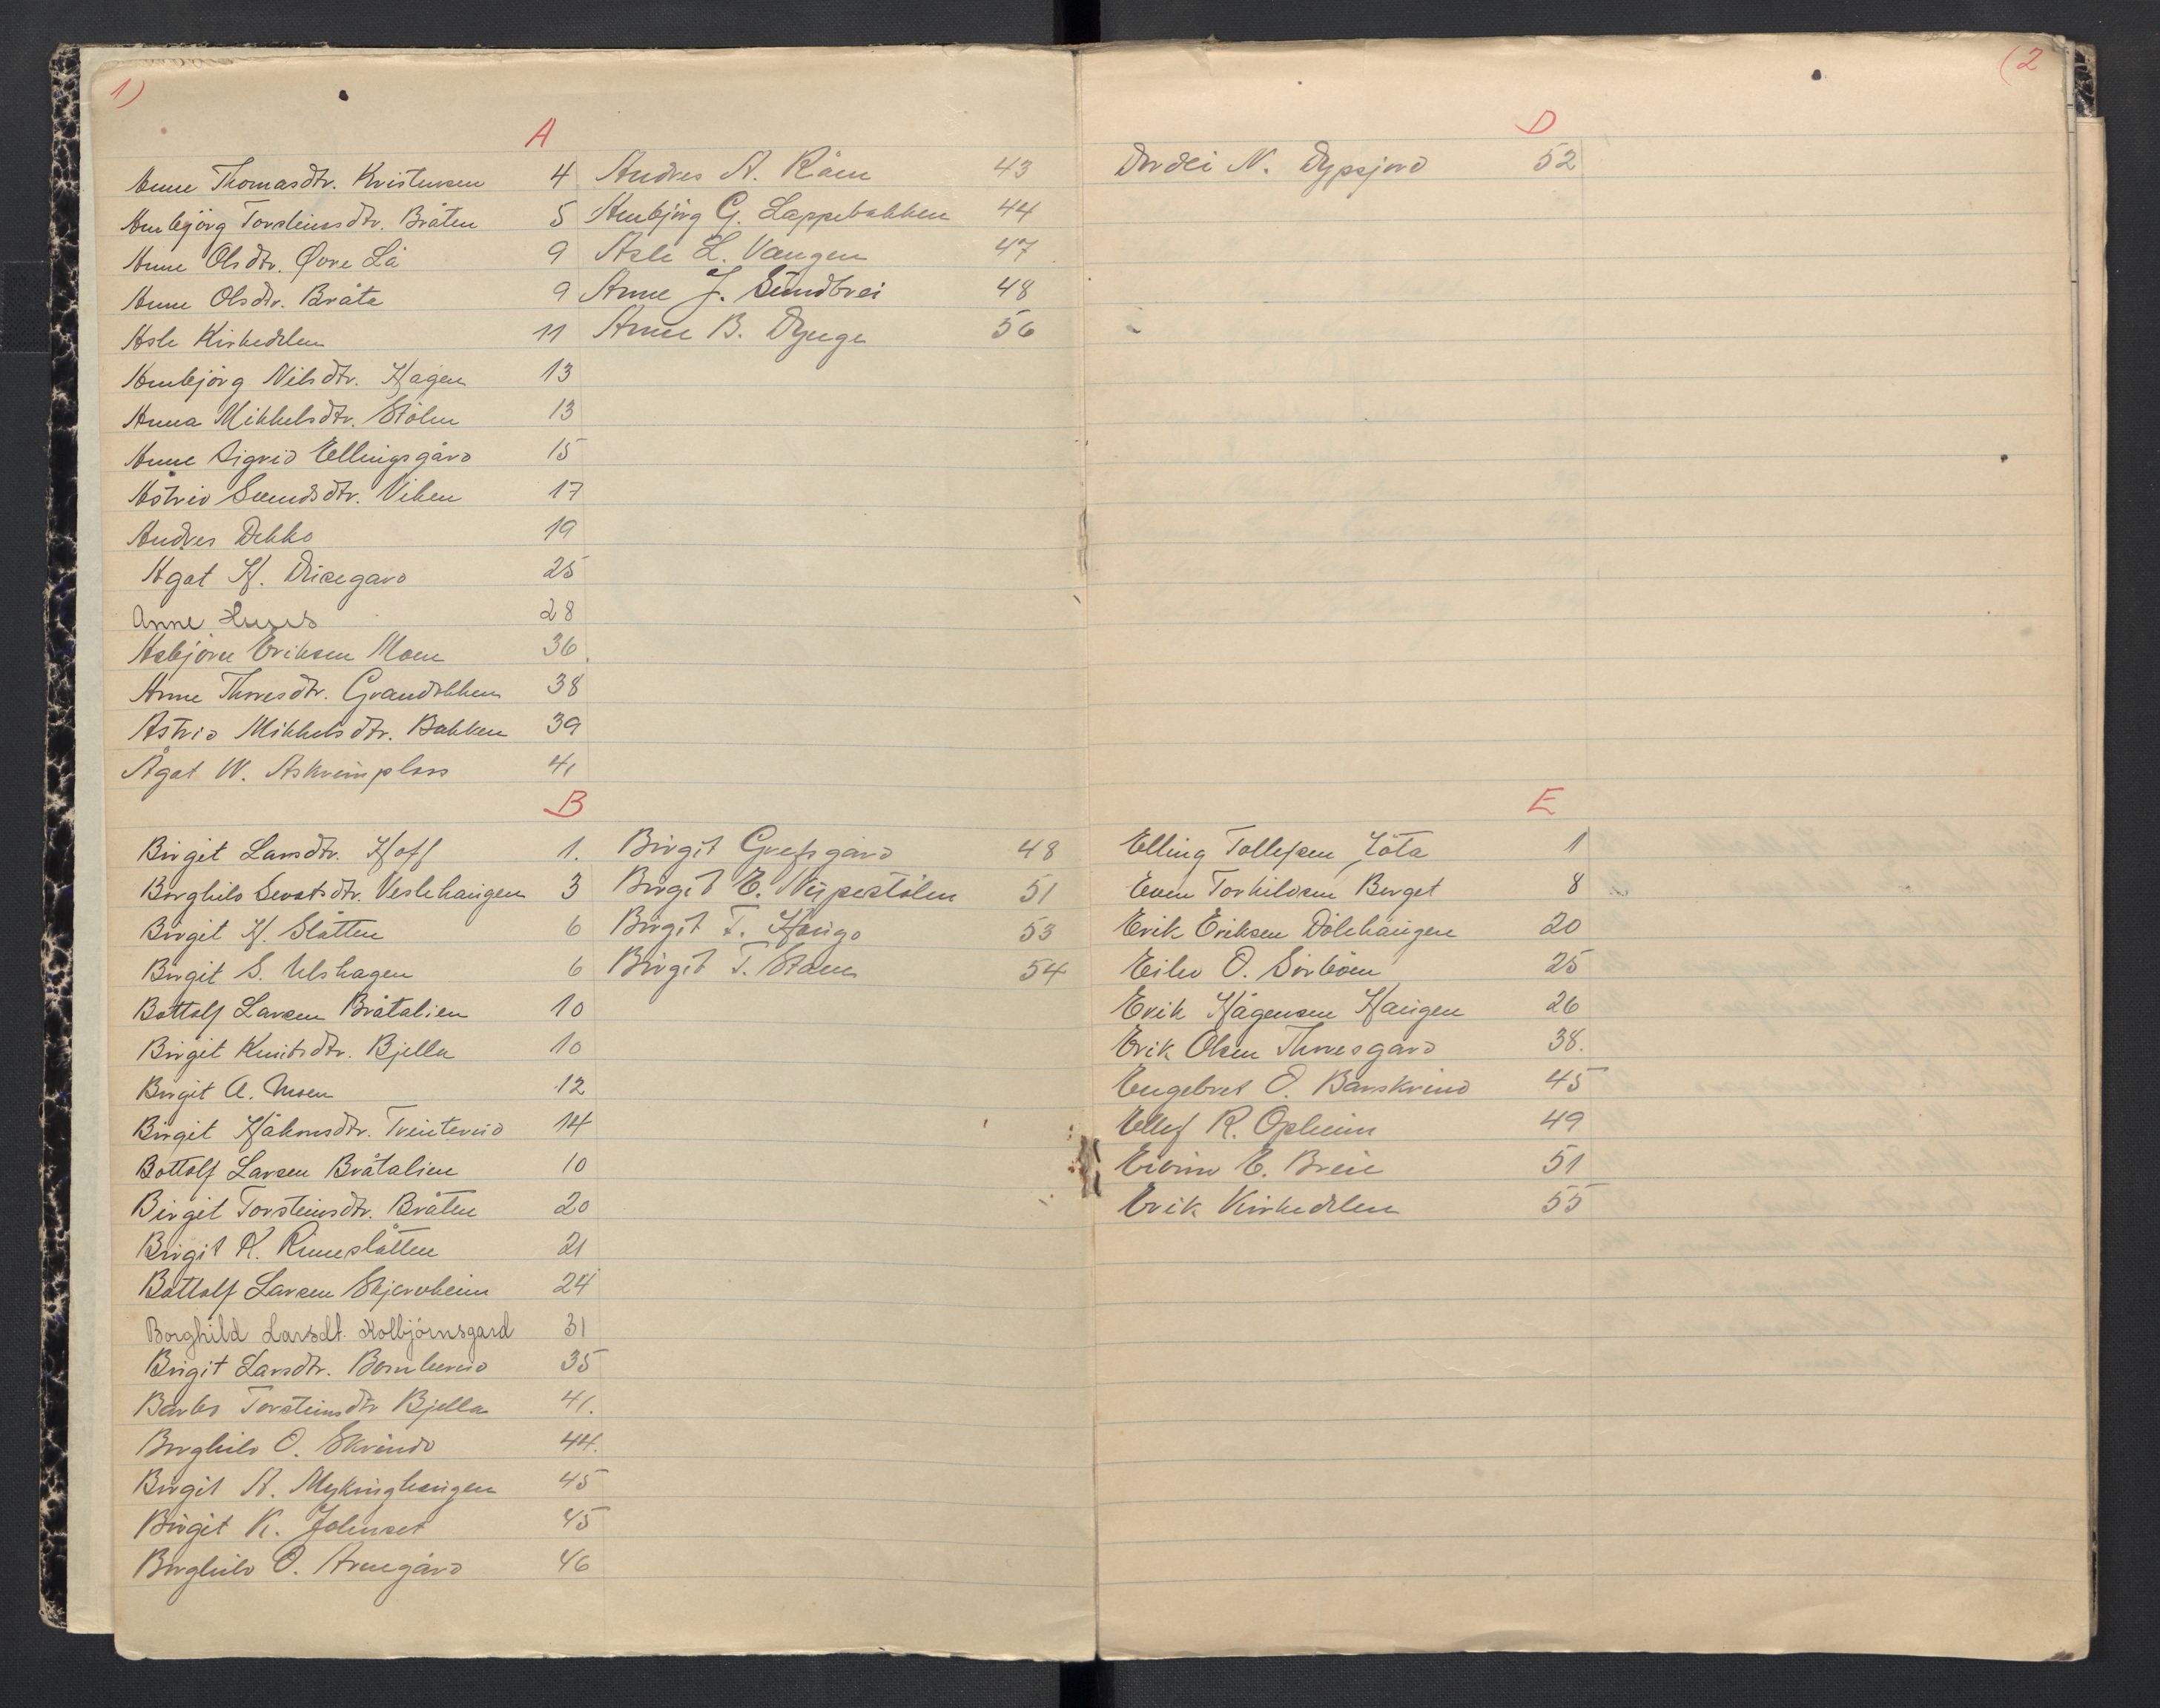 1)
A
Anne Thomasdtr. Kristensen 4
Anbjörg Torsteinsdtr. Bråten 5
Anne Olsdtr. Øvre Lå 9
Anne Olsdtr. Bråta 9
Asle Kirkedelen 11
Anbjörg Nilsdtr. Hagen 13
Anna Mikkelsdtr. Stölen 13
Anne Sigrid Ellingsgård 15
Astrid Svendsdtr. Viken 17
Andres Dekko 19
Agot H. 25
Anne 28
Asbjörn Eriksen Moen 36
Anne Thoresdtr. Grandokken 38
Astrid Mikkelsdtr. Bakken 39
Ågot W. Askveimplass 41
Andres A. Råen 43
Anbjörg G. Lappebakken 44
Asle L. Vangen 47
Anne J. Sundbrei 48
Anne B. Dynge 56
B
Birgit Larsdtr. Hoff 1.
Borghild Sevatsdtr. Veslehaugen 3
Birgit H. Slåtten 6
Birgit S. Ulshagen 6
Bottolf Larsen Bråtalien 10
Birgit Knutsdtr. Bjella 10
Birgit A. Moen 12
Birgit Håkonsdtr. Treintervid 14
Bottolf Larsen Bråtalien 10
Birgit Torsteinsdtr. Bråten 20
Birgit K. Rimeslåtten 21
Bottolf Larsen Skjervheim 24
Borghild Larsdt. Kolbjörnsgard 31
Birgit Larsdtr. 35
Barbo Torsteinsdtr Bjella 41.
Borghild O. Skrindo 44.
Birgit A. Mykinghaugen 45
Birgit K. Johnset 45
Borghild O. Arnegård 46
Birgit Grefsgård 48
Birgit E. Nipestölen 51
Birgit T. Haugo 53
Birgit T. Stoen 54
(2
D
Dordei N. Dypsjord 52
E
Elling Tollefsen Jöta 1
Even Torkildsen Berget 8
Erik Eriksen Dölehaugen 20
Eilev O. Sörböen 25
Erik Hågensen Haugen 26
Erik Olsen Thoresgard 38.
Engebret O. Barskrind 45
Ellef R. Opheim 49
Eivind E. Breie 51
Erik Kirkedelen 55